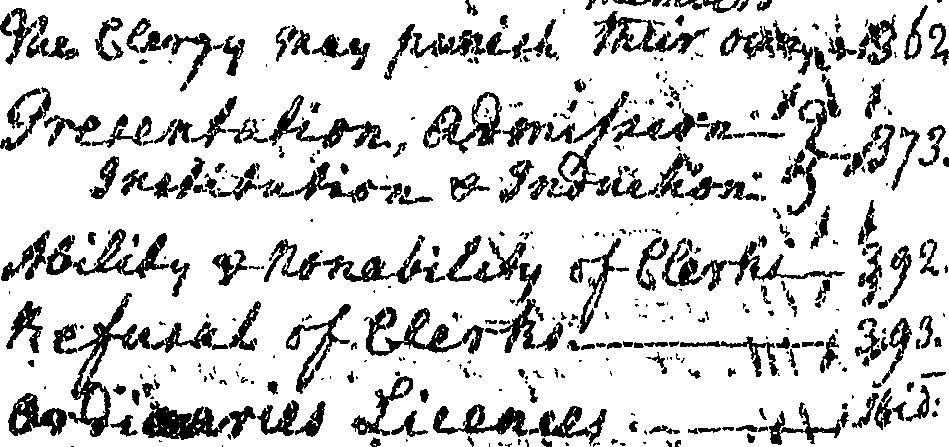 members
The Clergy may punish their own 362
Presentation, Admission
Institution & Induction 373.
Ability & Nonability of Clerks 392.
Refusal of Clerks 393.
Ordinaries Licences Ibid: